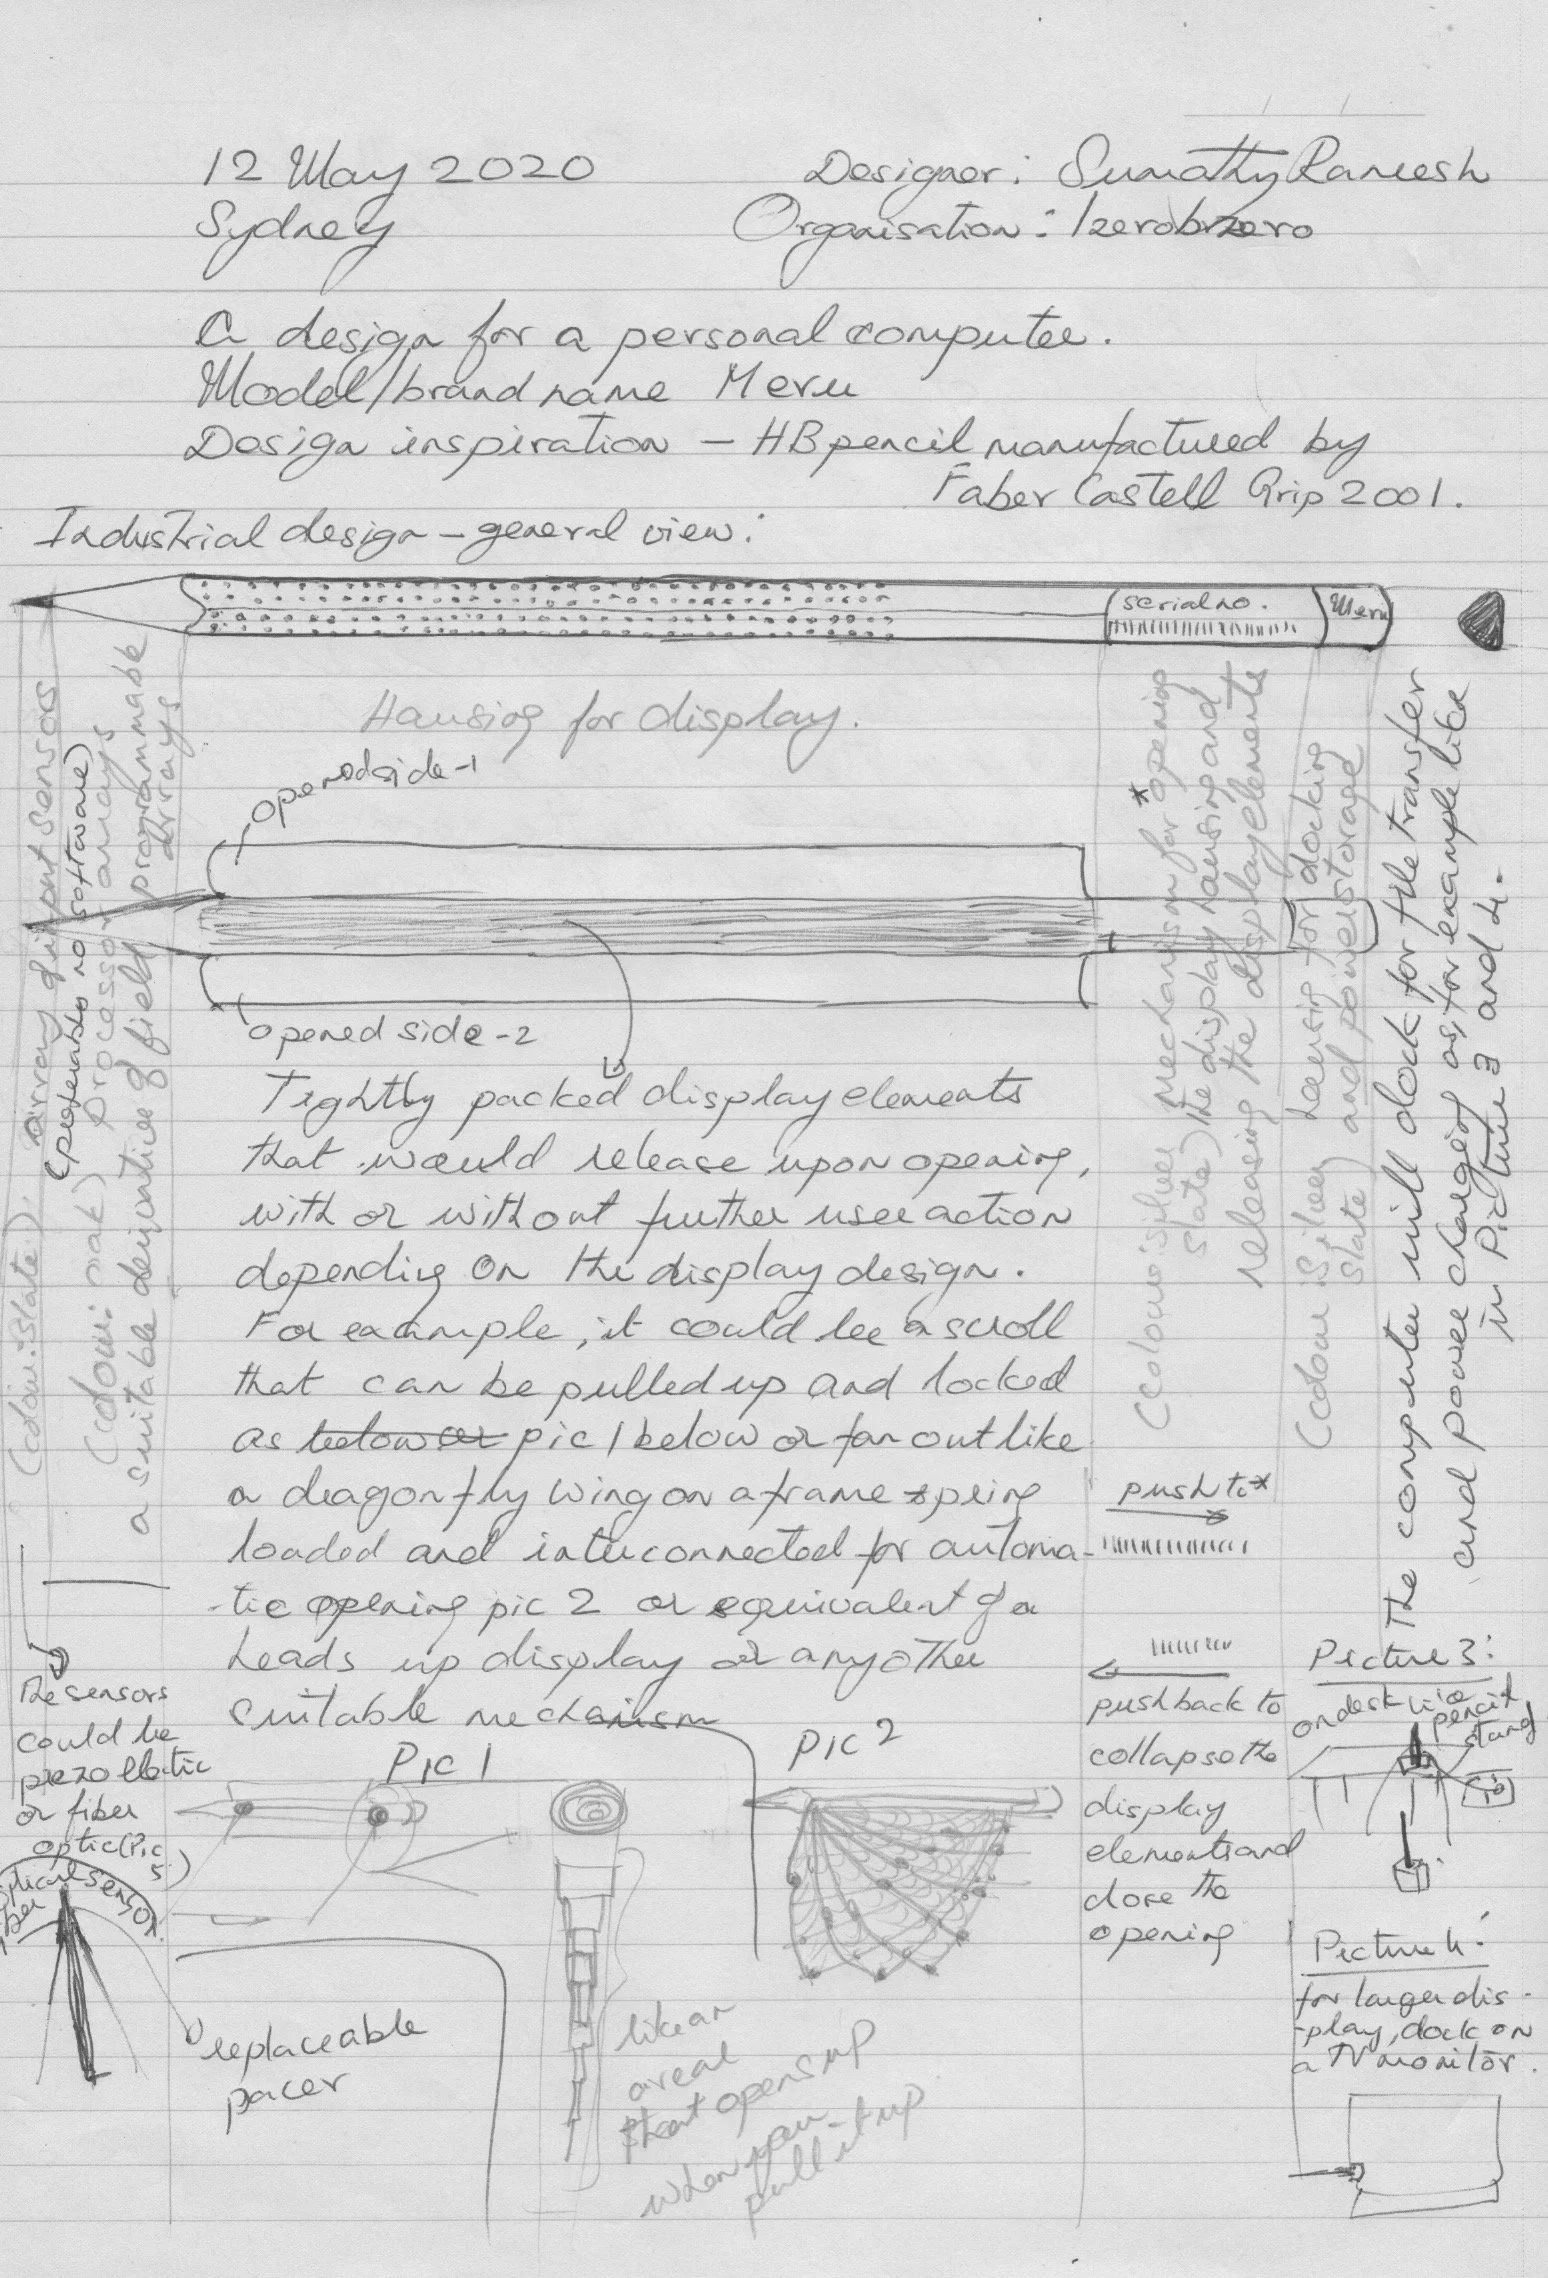 12 May 2020
Designer: Sumathy Ramesh
Sydney
Organisation: 1zerobzero
A design for a personal computer.
Model/brand name Meru
Design inspiration – HB pencil manufactured by
Faber Castell Grip 2001.
Industrial design – general view:
serial no.
Meru
Housing for display.
opened side-1
opened side-2
Tightly packed display elements
that would release upon opening,
with or without further user action
depending on the display design.
For example, it could be a scroll
that can be pulled up and locked
as below or pic 1 below or fan out like
a dragonfly wing on a frame spring
loaded and interconnected for automa-
-tic opening pic 2 or equivalent of a
heads up display or any other
suitable mechanism
(Colour: slate) array of input sensors
(preferably no software)
(colour: mak) processor arrays
a suitable derivative of field programmable
arrays
(Colour: silver slate) Mechanism for *opening
the display housing and
releasing the display elements
(Colour: silver slate) housing for docking
and power storage
The computer will dock for file transfer
and power charging as for example like
in Picture 3 and 4.
push to *
push back to
collapse the
display
elements and
close the
opening
The sensors
could be
piezo electric
or fiber
optic (Pic
5)
optical sensor
fiber
replaceable
pacer
Pic 1
like an
areal
that opens up
when you
pull it up
Pic 2
Picture 3:
on desk like
pencil
stand
Picture 4:
for larger dis-
-play, dock on
a TV monitor.